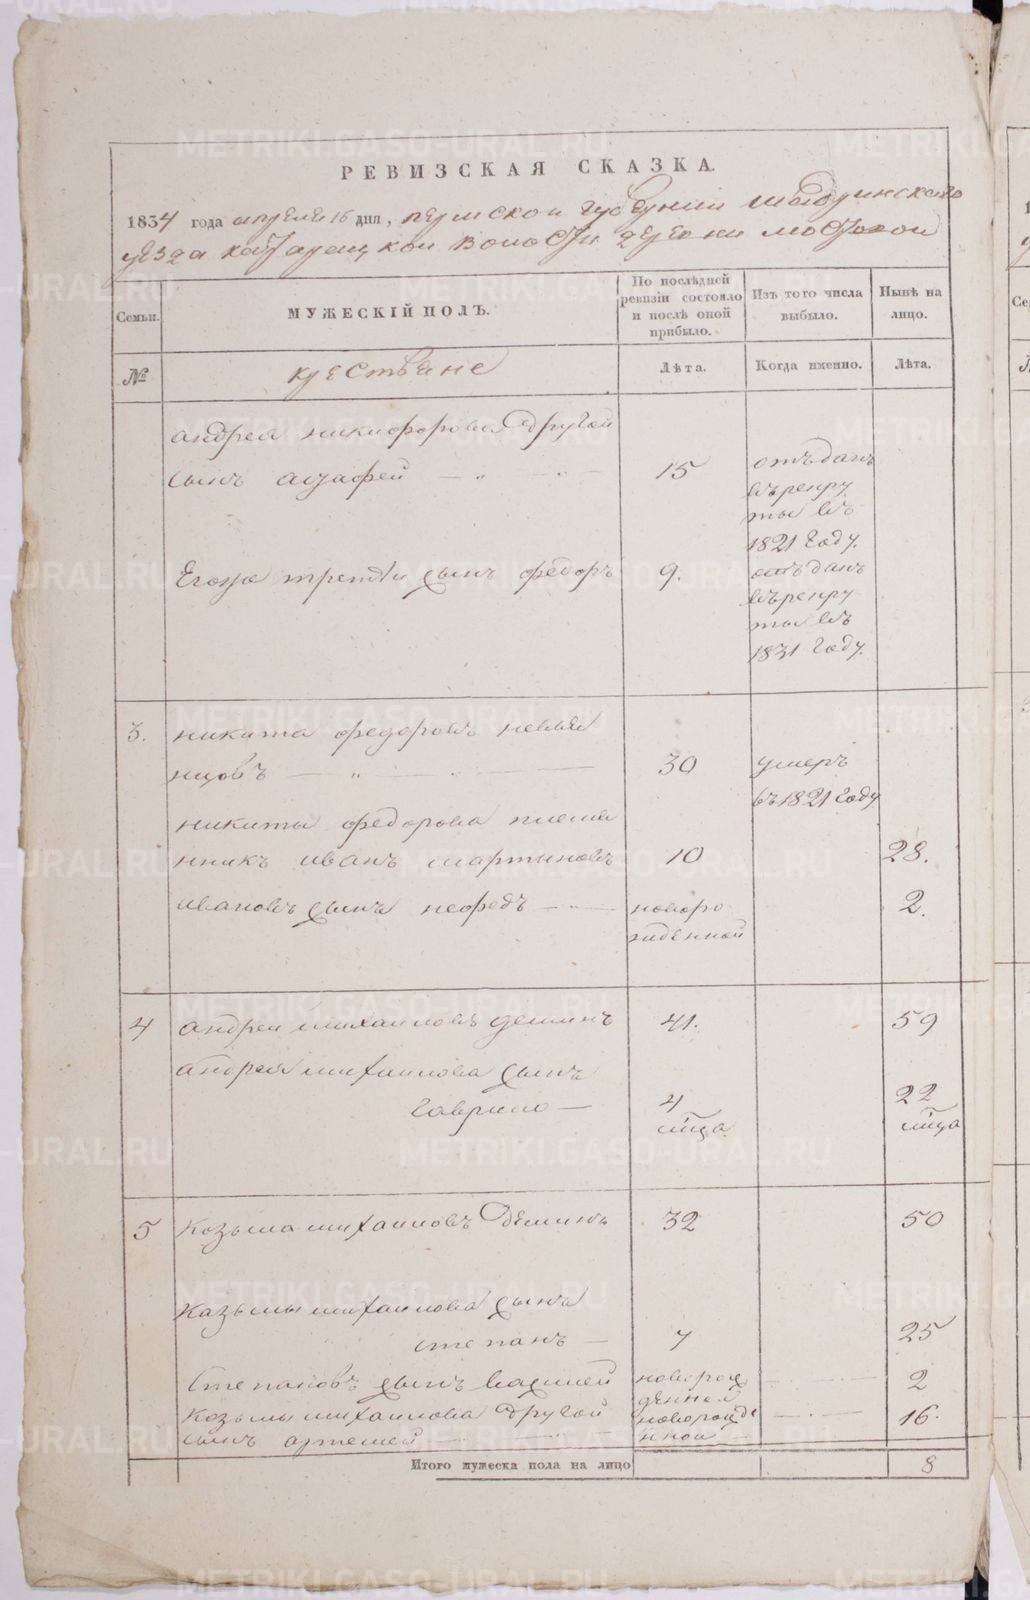 РЕВИЗСКАЯ СКАЗКА.
1834 года апреля 16 дня, пермской губернии шадринского
уезда катарацкой волости деревни мостовой
Семьи.
МУЖЕСКІЙ ПОЛЪ.
По послѣдней ревизіи состояло и послѣ оной прибыло.
Изъ того числа выбыло.
Нынѣ на лицо.
№
крестьяне
Лѣта.
Когда именно.
Лѣта.
андрея никифорова другой
сынъ агафей — 15 отъданъ
въ рекру
ты въ
1821 году.
Егоже третiй сынъ федоръ 9. отъданъ
въ рекру
ты въ
1831 году.
3. никита федоровъ невья
нцовъ — 30 умеръ
въ 1821 году
никиты федорова племя
нникъ иванъ мартыновъ 10 28.
ивановъ сынъ нефедъ — новоро 2.
жденной
4 андреи михаиловъ деминъ 41. 59
андрея михаилова сынъ
гаврило — 4 22
мца мца
5 козьма михаиловъ деминъ 32 50
козьмы михаилова сынъ
степанъ — 7 25
степановъ сынъ новорож 2
денной
козьмы михаилова другой новорожде 16.
сынъ артемей — нной
Итого мужеска пола на лицо 8
METRIKI.GASO-URAL.RU